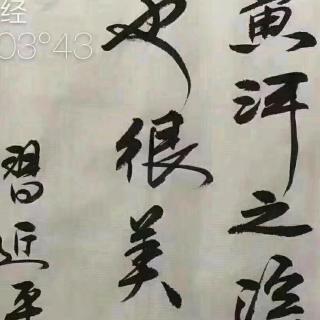 黄河之滨
也很美
習近平
经
03°43